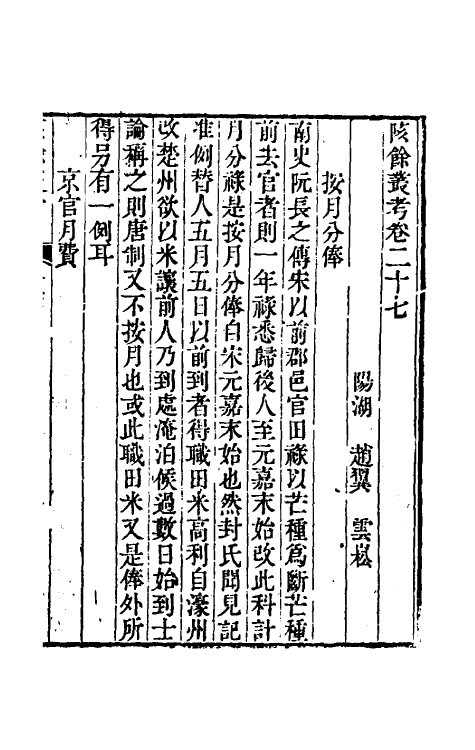 陔餘叢考卷二十七
陽湖 趙翼 雲崧
按月分俸
南史阮長之傳宋以前郡邑官田祿以芒種爲斷芒種
前去官者則一年祿悉歸後人至元嘉末始改此科計
月分祿是按月分俸自宋元嘉末始也然封氏聞見記
准例替人五月五日以前到者得職田米高利自濠州
改楚州欲以米讓前人乃到處淹泊候過數日始到士
論稱之則唐制又不按月也或此職田米又是俸外所
得另有一例耳
京官月費